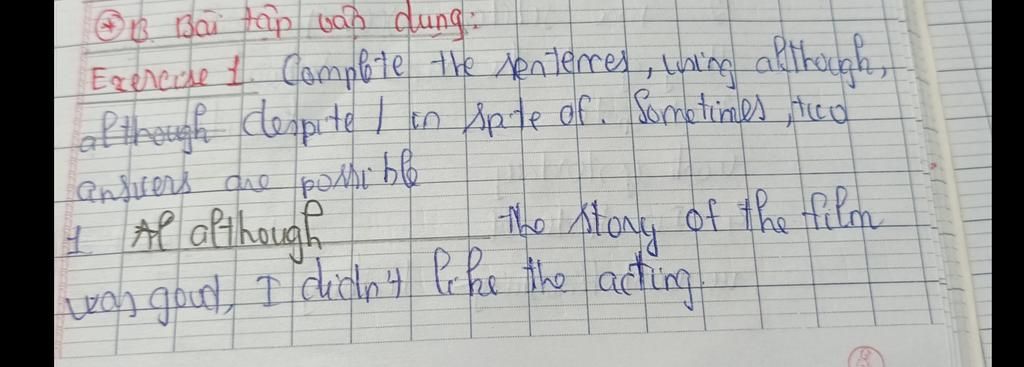 ⊕ B. Bài tập vận dụng:
Exercise 1. Complete the sentences, using although,
although despite / in spite of. Sometimes, two
answers are possible
1 Al although the story of the film
was good, I didn't like the acting.